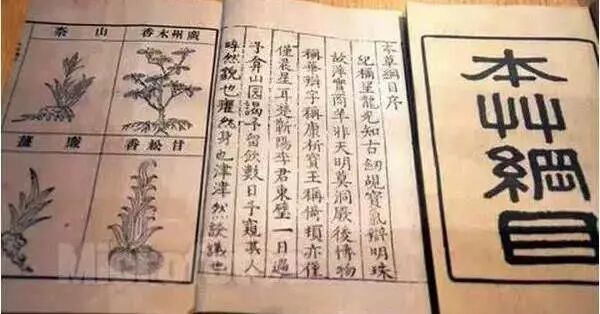 本艸綱目
本草綱目序
紀稱望龍光知古劒覘寶氣辯明珠
故萍實商羊非天明莫洞厥後博物
稱華辯字稱康析寶玉稱倚頓亦僅
僅晨星耳楚蘄陽李君東璧一日過
予弇山園謁予留飲數日予窺其人
睟然貌也癯然身也津津然譚議也
廣州木香
山柰
甘松香
廉薑